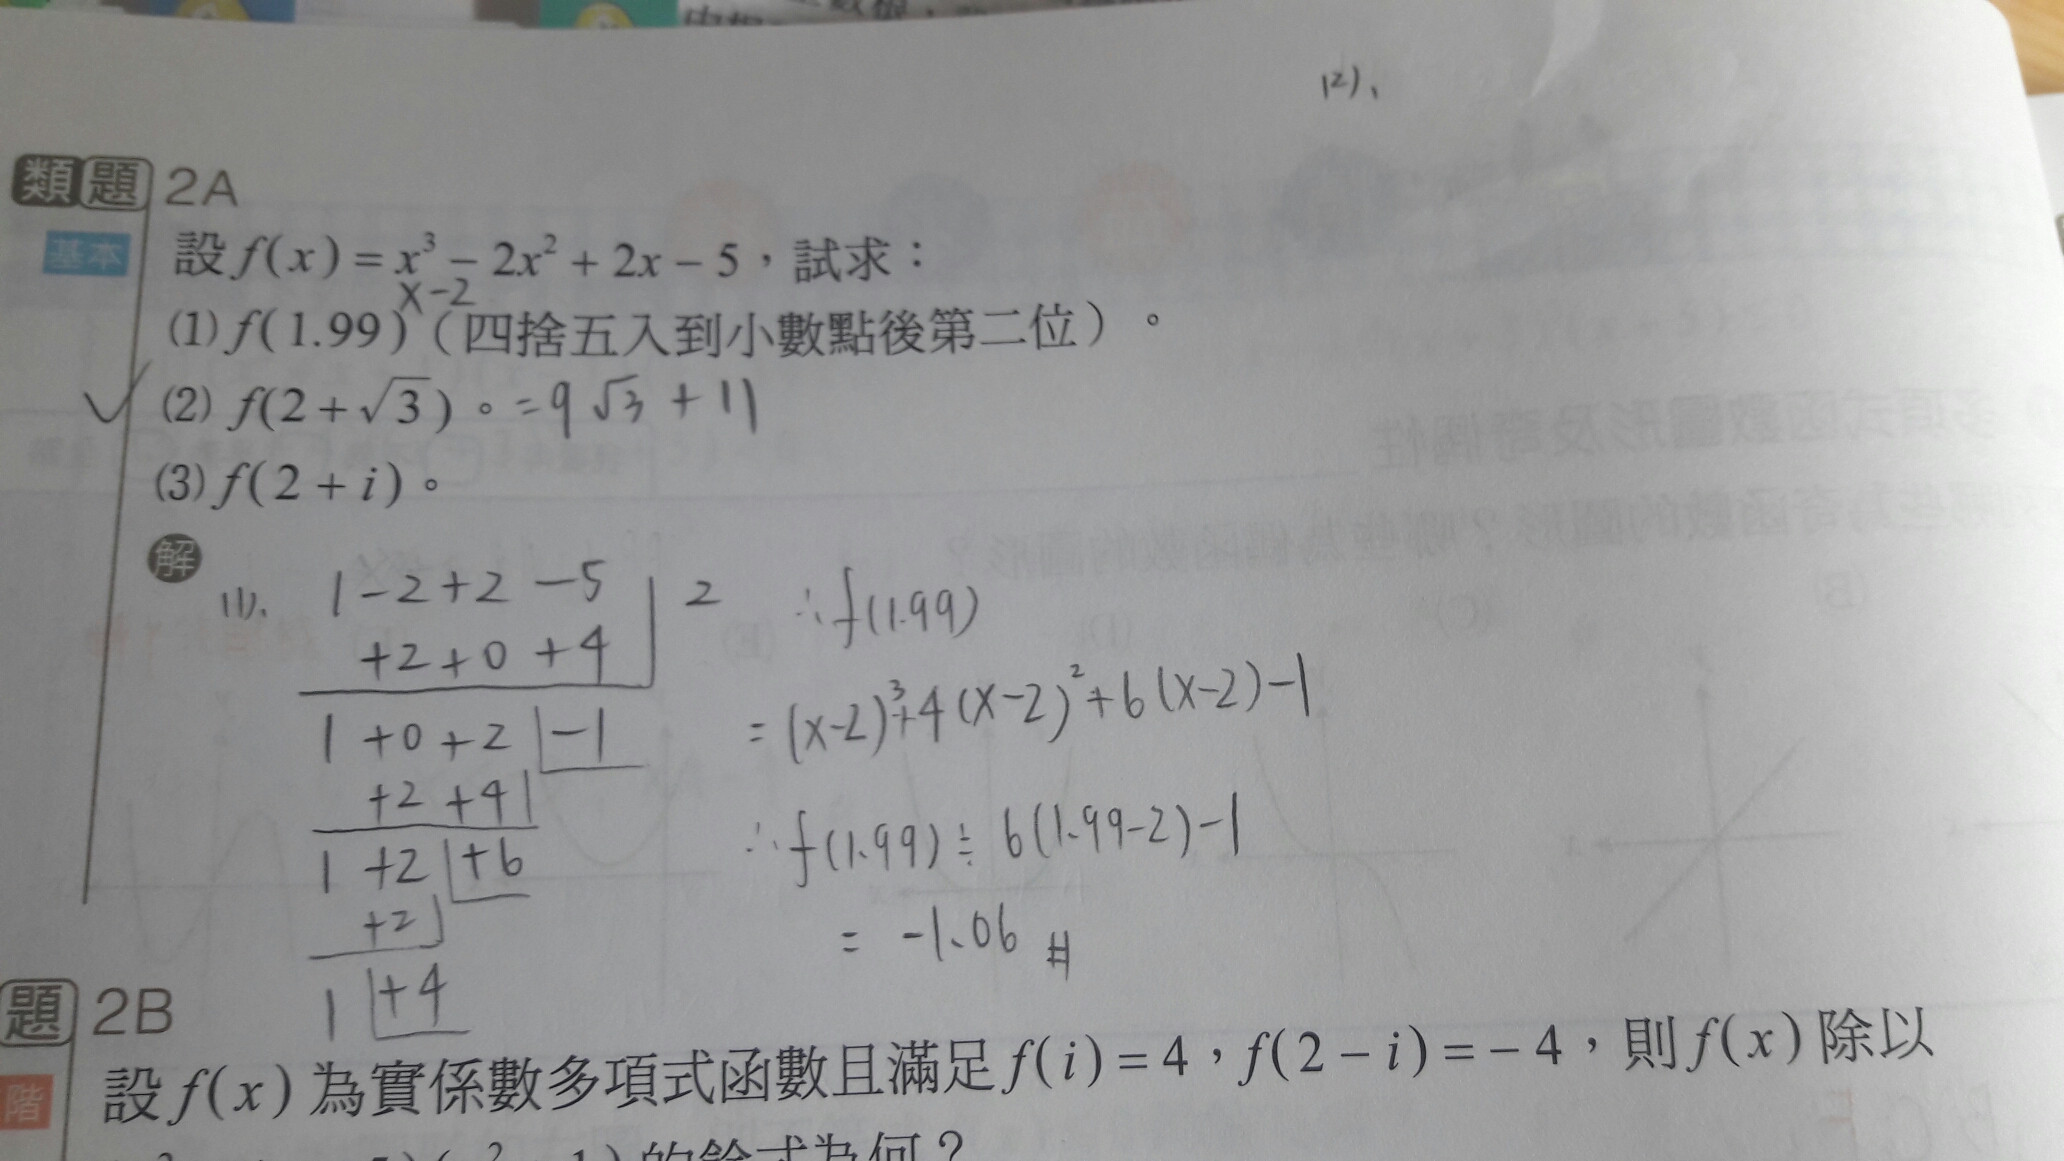 (2)、
類題 2A
基本
設 f(x) = x³ − 2x² + 2x − 5，試求：
x−2
(1) f(1.99)（四捨五入到小數點後第二位）。
(2) f(2 + √3)。= 9√3 + 11
(3) f(2 + i)。
解
(1)、 1 −2 +2 −5 | 2
+2 +0 +4
1 +0 +2 | −1
+2 +4
1 +2 | +6
+2
1 | +4
∴ f(1.99)
= (x−2)³ + 4(x−2)² + 6(x−2) − 1
∴ f(1.99) ≒ 6(1.99−2) − 1
= −1.06 #
題 2B
階
設 f(x) 為實係數多項式函數且滿足 f(i) = 4，f(2 − i) = − 4，則 f(x) 除以
的餘式為何？